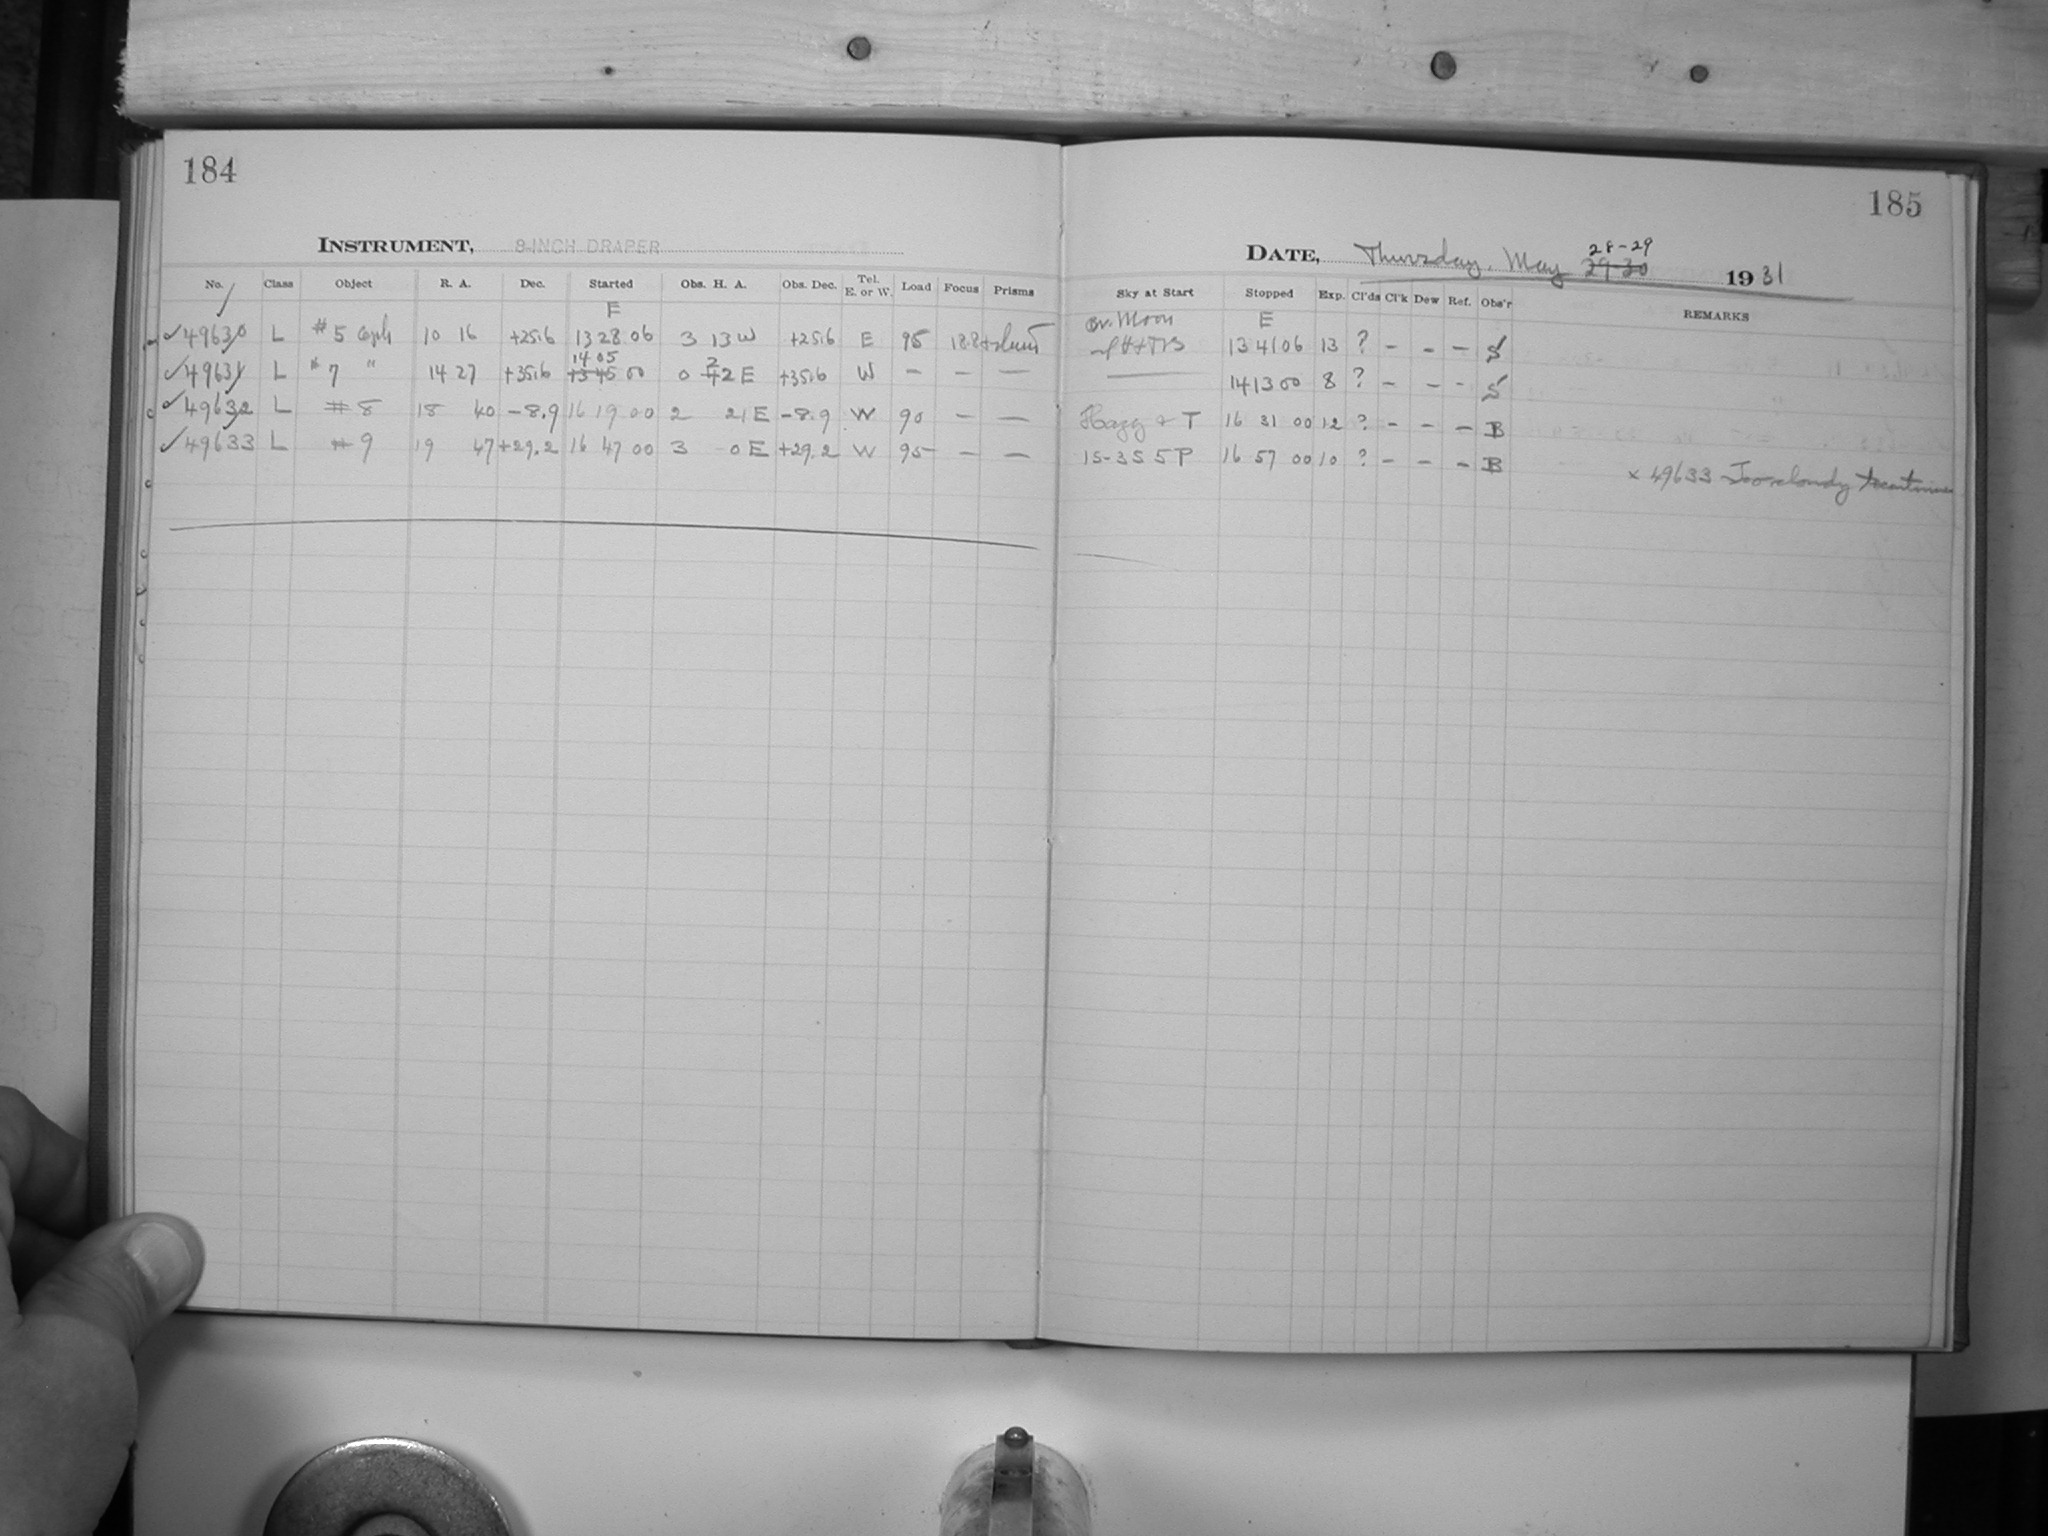 184
INSTRUMENT, 8-INCH DRAPER
No. Class Object R. A. Dec. Started Obs. H. A. Obs. Dec. Tel. E. or W. Load Focus Prisms
E
✓49630 L #5 10 16 +25.6 13 28 06 3 13 W +25.6 E 95 18.8
14 05
✓49631 L #7 " 14 27 +35.6 13 45 00 0 22 E +35.6 W — — —
✓49632 L #8 18 40 -8.9 16 19 00 2 21 E -8.9 W 90 — —
✓49633 L #9 19 47 +29.2 16 47 00 3 0 E +29.2 W 95 — —
185
DATE, Thursday, May 29-30 28-29 1931
Sky at Start Stopped Exp. Cl'ds Cl'k Dew Ref. Obs'r REMARKS
Br. Moon E
13 41 06 13 ? — — — S
14 13 00 8 ? — — — S
Hazy & T 16 31 00 12 ? — — — B
15-35 5P 16 57 00 10 ? — — — B
x 49633 Too cloudy to continue